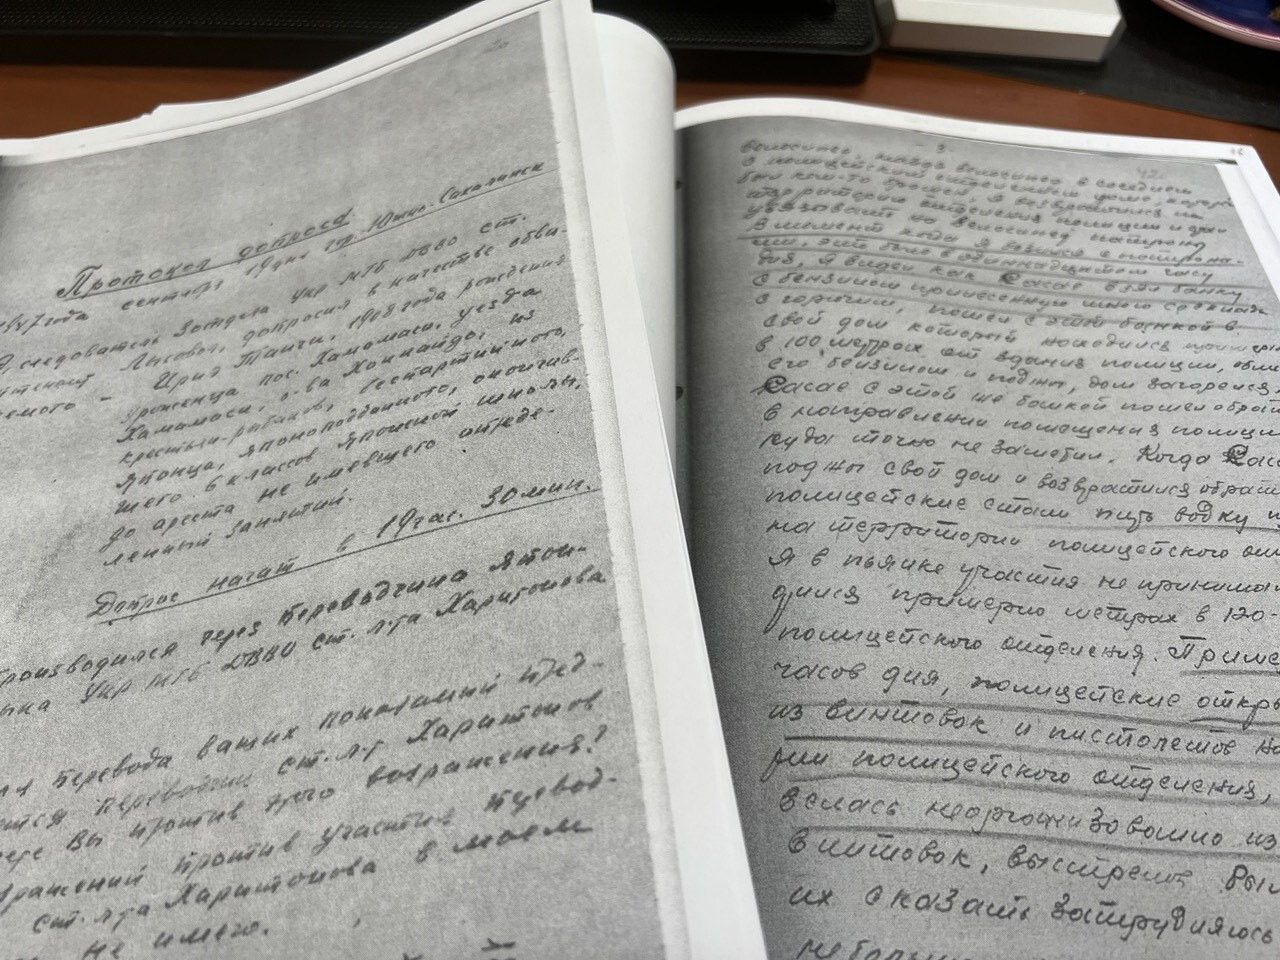 Протокол допроса
1947 года сентября 19 дня гор. Южно-Сахалинск
следователь 3 отдела Укр МГБ ДВВО ст.
лейтенант допросил в качестве обви-
няемого – Ирие Таичи, 1908 года рождения
уроженца пос. Хамомаси, уезда
Хамомаси, о-ва Хоккайдо, из
крестьян-рыбаков, беспартийного,
японца, японоподданного, окончив-
шего 6 классов японской школы,
до ареста не имевшего опреде-
ленных занятий.
Допрос начат в 19 час. 30 мин.
производился через переводчика япон-
Укр МГБ ДВВО ст. л-та Харитонова
перевода ваших показаний пред-
переводчик ст. л-т Харитонов
Вы против этого возражения?
против участия перевод-
ст. л-та Харитонова в моем
не имею.
- 3 -
42
велосипед, найдя велосипед в соседнем
с полицейским отделением доме,
был кем-то брошен, я возвратился на
территорию отделения полиции и стал
увязывать на велосипед патроны
В момент когда я возился с патрона-
ми, это было в одиннадцатом часу
дня, я видел как Сасае взял банку
с бензином принесенную мною со склада
с горючим, пошел с этой банкой в
свой дом который находился
в 100 метрах от здания полиции, облил
его бензином и поджег, дом загорелся.
Сасае с этой же банкой пошел
в направлении помещения полиции
куда точно не заметил. Когда
поджег свой дом и возвратился
полицейские стали пить водку
на территории полицейского
Я в пьянке участия не принимал
примерно метрах в 120-
полицейского отделения.
часов дня, полицейские
из винтовок и пистолетов
полицейского отделения,
велась неорганизованно из
винтовок, выстрелов
их сказать затрудняюсь